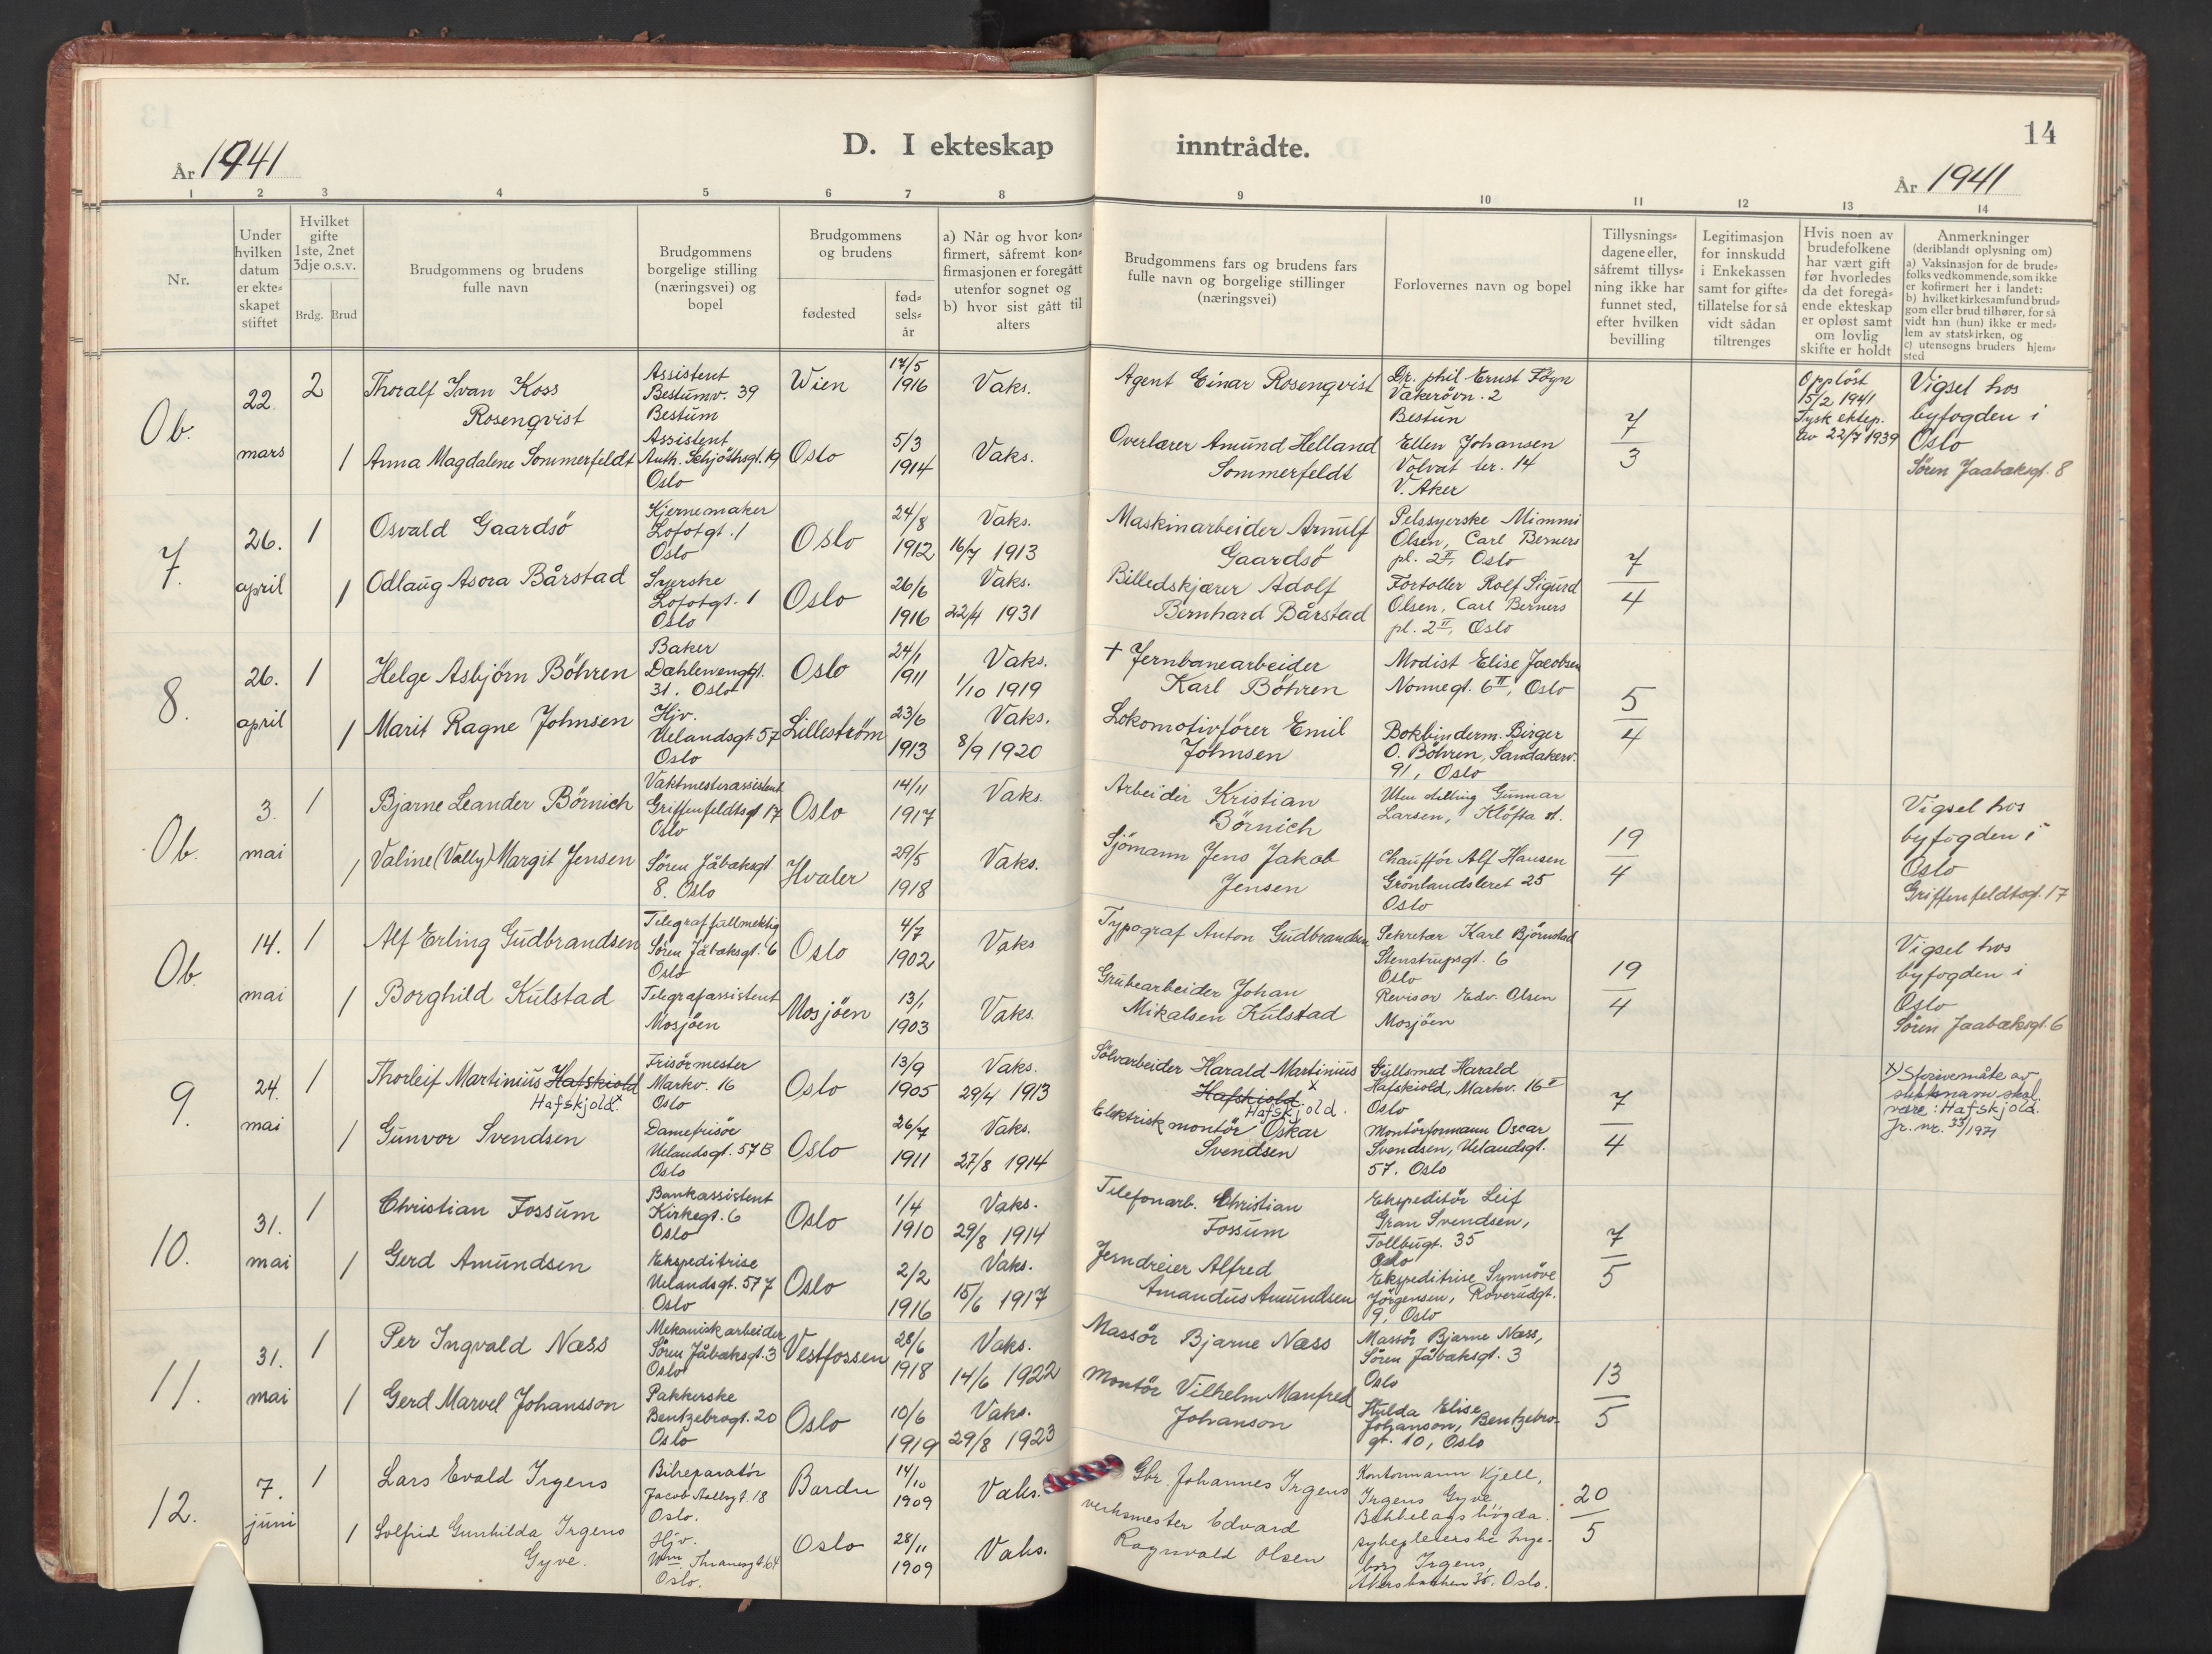 D. I ekteskap inntrådte.
14
År 1941
År 1941
1 2 3 4 5 6 7 8 9 10 11 12 13 14
Nr.
Under
hvilken
datum
er ekte-
skapet
stiftet
Hvilket
gifte
1ste, 2net
3dje o.s.v.
Brdg. Brud
Brudgommens og brudens
fulle navn
Brudgommens
borgelige stilling
(næringsvei) og
bopel
Brudgommens
og brudens
fødested
fød-
sels-
år
a) Når og hvor kon-
firmert, såfremt kon-
firmasjonen er foregått
utenfor sognet og
b) hvor sist gått til
alters
Brudgommens fars og brudens fars
fulle navn og borgelige stillinger
(næringsvei)
Forlovernes navn og bopel
Tillysnings-
dagene eller,
såfremt tillys-
ning ikke har
funnet sted,
efter hvilken
bevilling
Legitimasjon
for innskudd
i Enkekassen
samt for gifte-
tillatelse for så
vidt sådan
tiltrenges
Hvis noen av
brudefolkene
har vært gift
før hvorledes
da det foregå-
ende ekteskap
er opløst samt
om lovlig
skifte er holdt
Anmerkninger
(deriblandt oplysning om)
a) Vaksinasjon for de brude-
folks vedkommende, som ikke
er kofirmert her i landet:
b) hvilket kirkesamfund brud-
gom eller brud tilhører, for så
vidt han (hun) ikke er med-
lem av statskirken, og
c) utensogns bruders hjem-
sted
Ob.
22.
mars
2
1
Thoralf Ivan Koss
Rosenqvist
Assistent
Bestumv. 39
Bestum
Wien
17/5
1916
Vaks.
Agent Einar Rosenqvist
Dr. phil Ernst Föyn
Vækerövn. 2
Bestun
7/3
Opplöst
15/2 1941
Tysk ektep.
av 22/7 1939
Vigsel hos
byfogden i
Oslo
Sören Jaabæksgt. 8
Anna Magdalene Sommerfeldt
Assistent
Anth. Schjöthsgt. 19
Oslo
Oslo
5/3
1914
Vaks.
Overlærer Amund Helland
Sommerfeldt
Ellen Johansen
Volvat ter. 14
V. Aker
7.
26.
april
1
1
Osvald Gaardsö
Kjernemaker
Lofotgt. 1
Oslo
Oslo
24/8
1912
Vaks.
16/7 1913
Maskinarbeider Arnulf
Gaardsö
Pelssyerske Mimmi
Olsen, Carl Berners
pl. 2II, Oslo
7/4
Odlaug Asora Bårstad
Syerske
Lofotgt. 1
Oslo
Oslo
26/6
1916
Vaks.
22/4 1931
Billedskjærer Adolf
Bernhard Bårstad
Fortoller Rolf Sigurd
Olsen, Carl Berners
pl. 2II, Oslo
8.
26.
april
1
1
Helge Asbjörn Böhren
Baker
Dæhlenenggt.
31. Oslo
Oslo
24/1
1911
Vaks.
1/10 1919
+ Jernbanearbeider
Karl Böhren
Modist Elise Jacobsen
Nonnegt. 6II, Oslo
5/4
Marit Ragne Johnsen
Hjv.
Uelandsgt. 57
Oslo
Lilleström
23/6
1913
Vaks.
8/9 1920
Lokomotivförer Emil
Johnsen
Bokbinderm. Birger
O. Böhren, Sandakerv.
91, Oslo
Ob.
3.
mai
1
1
Bjarne Leander Börnich
Vaktmesterassistent
Griffenfeldtsgt 17
Oslo
Oslo
14/11
1917
Vaks.
Arbeider Kristian
Börnich
Uten stilling Gunnar
Larsen, Klöfta st.
19/4
Vigsel hos
byfogden i
Oslo
Griffenfeldtsgt. 17
Valine (Vally) Margit Jensen
Sören Jåbæksgt
8. Oslo
Hvaler
29/5
1918
Vaks.
Sjömann Jens Jakob
Jensen
Chaufför Alf Hansen
Grönlandsleret 25
Oslo
Ob.
14.
mai
1
1
Alf Erling Gudbrandsen
Telegraffullmektig
Sören Jåbæksgt. 6
Oslo
Oslo
4/7
1902
Vaks
Typograf Anton Gudbrandsen
Sekretær Karl Björnstad
Stenstrupsgt. 6
Oslo
19/4
Vigsel hos
byfogden i
Oslo
Sören Jaabæksgt. 6
Borghild Kulstad
Telegrafassistent
Mosjöen
Mosjöen
13/1
1903
Vaks.
Grubearbeider Johan
Mikalsen Kulstad
Revisor Edv. Olsen
Mosjöen
9.
24.
mai
1
1
Thorleif Martinius Hafskiold
Hafskjold.x
Frisörmester
Markv. 16
Oslo
Oslo
13/9
1905
Vaks.
29/4 1913
Sölvarbeider Harald Martinius
Hafskiold x
Hafskjold.
Gullsmed Harald
Hafskiold, Markv. 16II
Oslo
7/4
x) Skrivemåte av
slektsnavn skal
være: Hafskjold.
Jr. nr. 33/1971
Gunvor Svendsen
Damefrisör
Uelandsgt. 57B
Oslo
Oslo
26/7
1911
Vaks.
27/8 1914
Elektrisk montör Oskar
Svendsen
Montörformann Oscar
Svendsen, Uelandsgt.
57. Oslo
10.
31.
mai
1
1
Christian Fossum
Bankassistent
Kirkegt. 6
Oslo
Oslo
1/4
1910
Vaks.
29/8 1914
Telefonarb. Christian
Fossum
Ekspeditör Leif
Gran Svendsen,
Tollbugt. 35
Oslo
7/5
Gerd Amundsen
Ekspeditrise
Uelandsgt. 57
Oslo
Oslo
2/2
1916
Vaks.
15/6 1917
Jerndreier Alfred
Amandus Amundsen
Ekspeditrise Synnöve
Jörgensen, Roverudgt.
9, Oslo
11.
31.
mai
1
1
Per Ingvald Næss
Mekanisk arbeider
Sören Jåbæksgt. 3
Oslo
Vestfossen
28/6
1918
Vaks.
14/6 1922
Massör Bjarne Næss
Massör Bjarne Næss,
Sören Jåbæksgt. 3
Oslo
13/5
Gerd Marvel Johansson
Pakkerske
Bentzebrogt. 20
Oslo
Oslo
10/6
1919
Vaks.
29/8 1923
Montör Vilhelm Manfred
Johanson
Hulda Elise
Johanson, Bentzebro-
gt. 10, Oslo
12.
7.
juni
1
1
Lars Evald Irgens
Bilreparatör
Jacob Aallsgt. 18
Oslo.
Bardu
14/10
1909
Vaks.
Gbr. Johannes Irgens
Kontormann Kjell,
Irgens Gyve
Bekkelagshögda.
20/5
Solfrid Gunhilda Irgens
Gyve.
Hjv.
Wm. Thranesgt. 64
Oslo.
Oslo
28/11
1909
Vaks.
verksmester Edvard
Ragnvald Olsen
sykepleierske Inge-
borg Irgens
Akersbakken 35. Oslo.